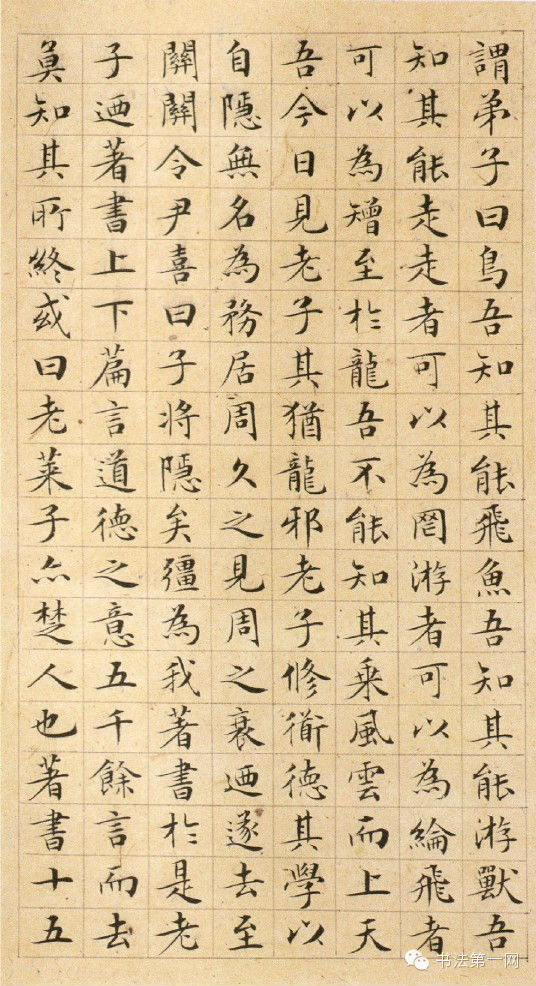 謂弟子曰鳥吾知其能飛魚吾知其能游獸吾
知其能走走者可以為罔游者可以為綸飛者
可以為矰至於龍吾不能知其乗風雲而上天
吾今日見老子其猶龍邪老子修衜徳其學以
自隱無名為務居周久之見周之衰迺遂去至
關關令尹喜曰子將隱矣彊為我著書於是老
子迺著書上下萹言道徳之意五千餘言而去
莫知其所終或曰老莱子亦楚人也著書十五
书法第一网